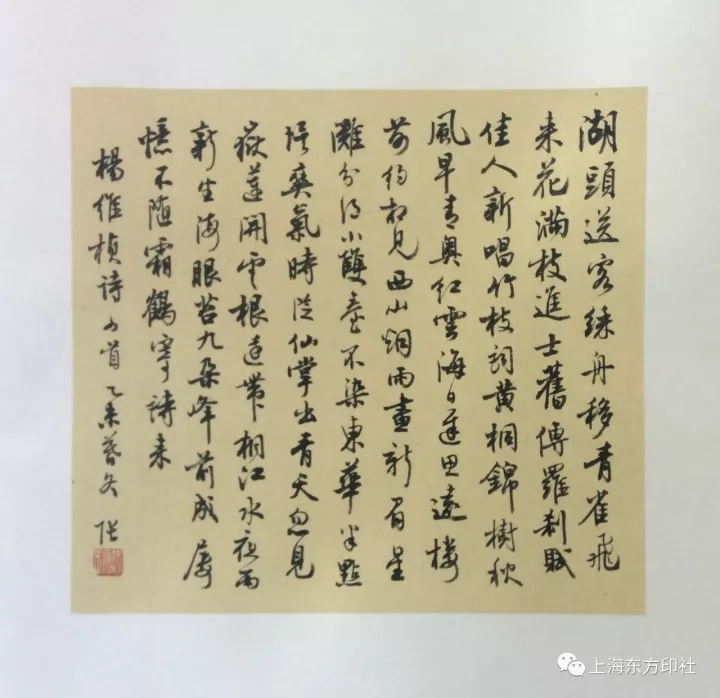 湖頭送客綵舟移青雀飛
来花滿枝進士舊傳羅刹賦
佳人新唱竹枝詞黄桐錦樹秋
風早青奥紅雲海日遲思遠楼
前約相見西山烟雨畫新眉星
灘分得小雙臺不染東華半點
埃爽氣時從仙掌出青天忽見
嶽蓮開雲根遠帶桐江水夜雨
新生海眼苔九朵峰前成屡
憶不隨霜鶴寄詩来
楊維楨詩二首乙未暮冬
上海东方印社